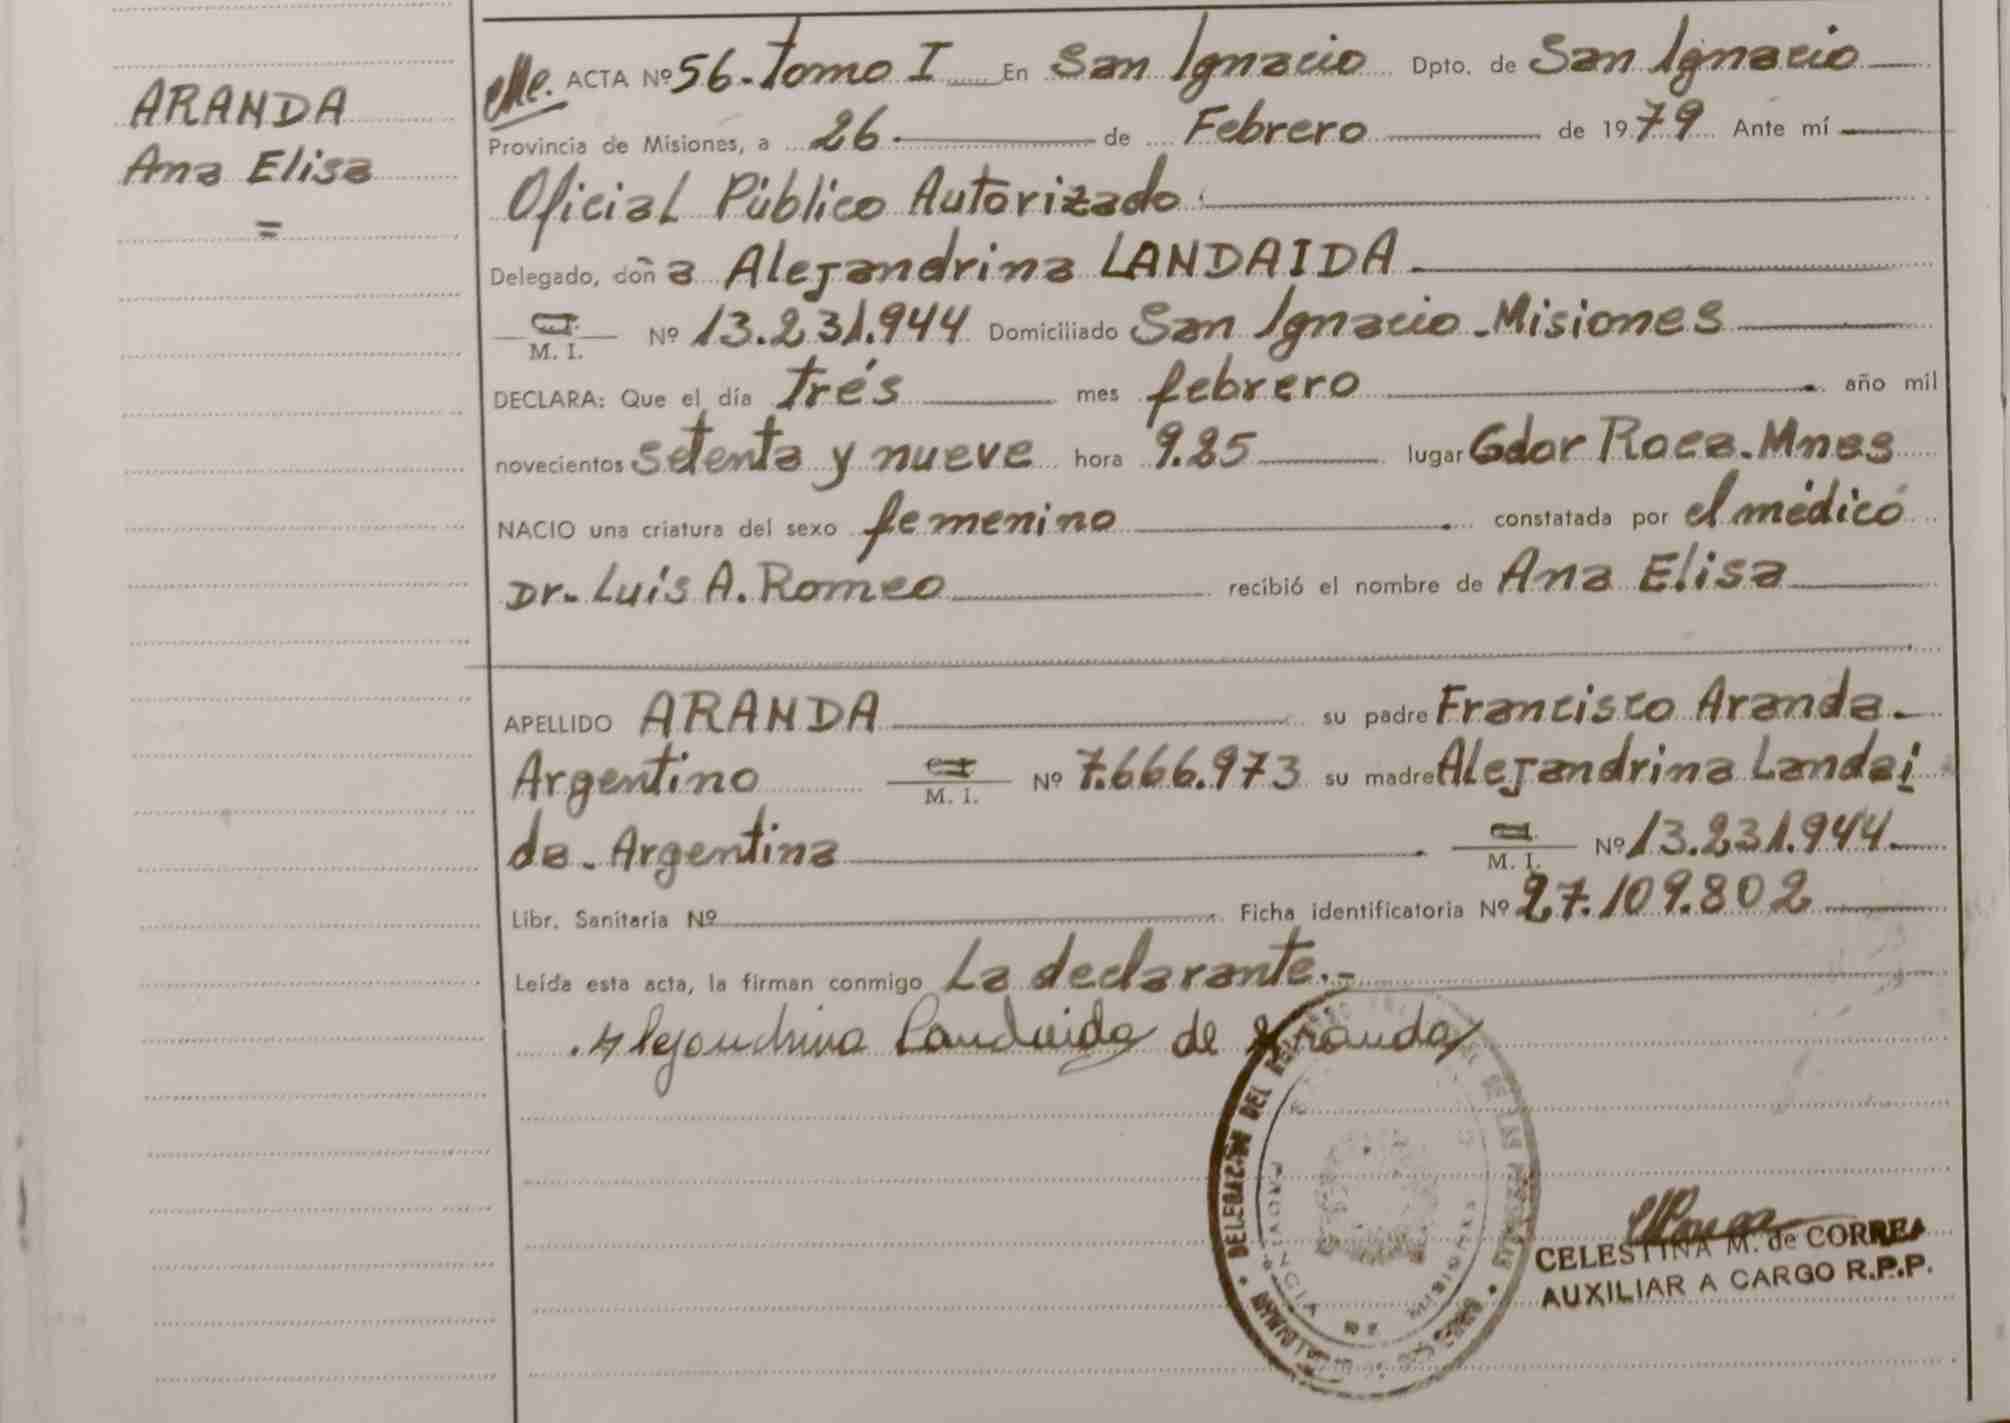 ARANDA
Ana Elisa
=
ACTA Nº 56.- Tomo I En San Ignacio Dpto. de San Ignacio
Provincia de Misiones, a 26 de Febrero de 1979 Ante mí
Oficial Público Autorizado
Delegado, doña Alejandrina LANDAIDA
M. I. Nº 13.231.944 Domiciliado San Ignacio - Misiones
DECLARA: Que el día trés mes febrero año mil
novecientos setenta y nueve hora 9.25 lugar Gdor Roca. Mnes
NACIO una criatura del sexo femenino constatada por el médico
Dr. Luis A. Romeo recibió el nombre de Ana Elisa
APELLIDO ARANDA su padre Francisco Aranda.
Argentino M. I. Nº 7.666.973 su madre Alejandrina Landai
da. Argentina M. I. Nº 13.231.944.
Libr. Sanitaria Nº Ficha identificatoria Nº 27.109.802
Leída esta acta, la firman conmigo La declarante.-
Alejandrina Landaida de Aranda
DELEGACIÓN DEL REGISTRO DE LAS PERSONAS
PROVINCIA DE MISIONES
CELESTINA M. de CORREA
AUXILIAR A CARGO R.P.P.